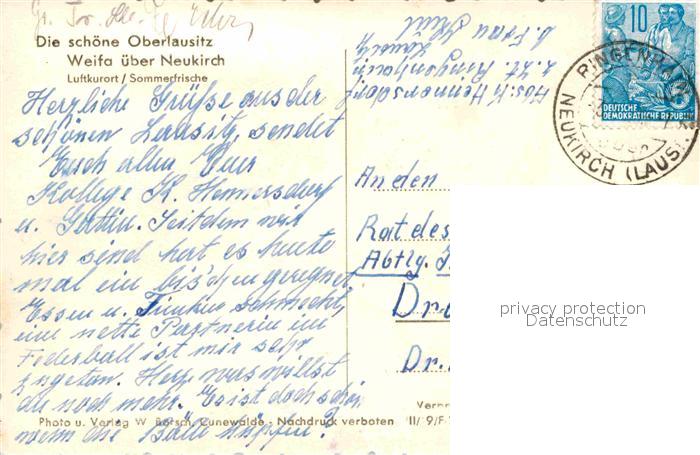 Die schöne Oberlausitz
Weifa über Neukirch
Luftkurort / Sommerfrische
Herzliche Grüße aus der
schönen Lausitz, sendet
Euch allen Euer
Kollege K. Hennersdorf
u. Gattin. Seitdem wir
hier sind hat es heute
mal ein bis'chen geregnet
Essen u. Trinken schmeckt,
eine nette Partnerin im
Federball ist mir sehr
zugetan. Herz was willst
du noch mehr. Es ist doch schön
wenn die Bälle hüpfen?
Photo u. Verlag W. Börsch, Cunewalde - Nachdruck verboten II/ 9/F
Abs. K. Hennersdorf
z. Zt. Ringenhain
Lausitz
b. Frau
10
DEUTSCHE
DEMOKRATISCHE REPUBLIK
RINGENHAIN
NEUKIRCH (LAUS
An den
Rat des
Abtlg.
Dr
Dr.
privacy protection
Datenschutz